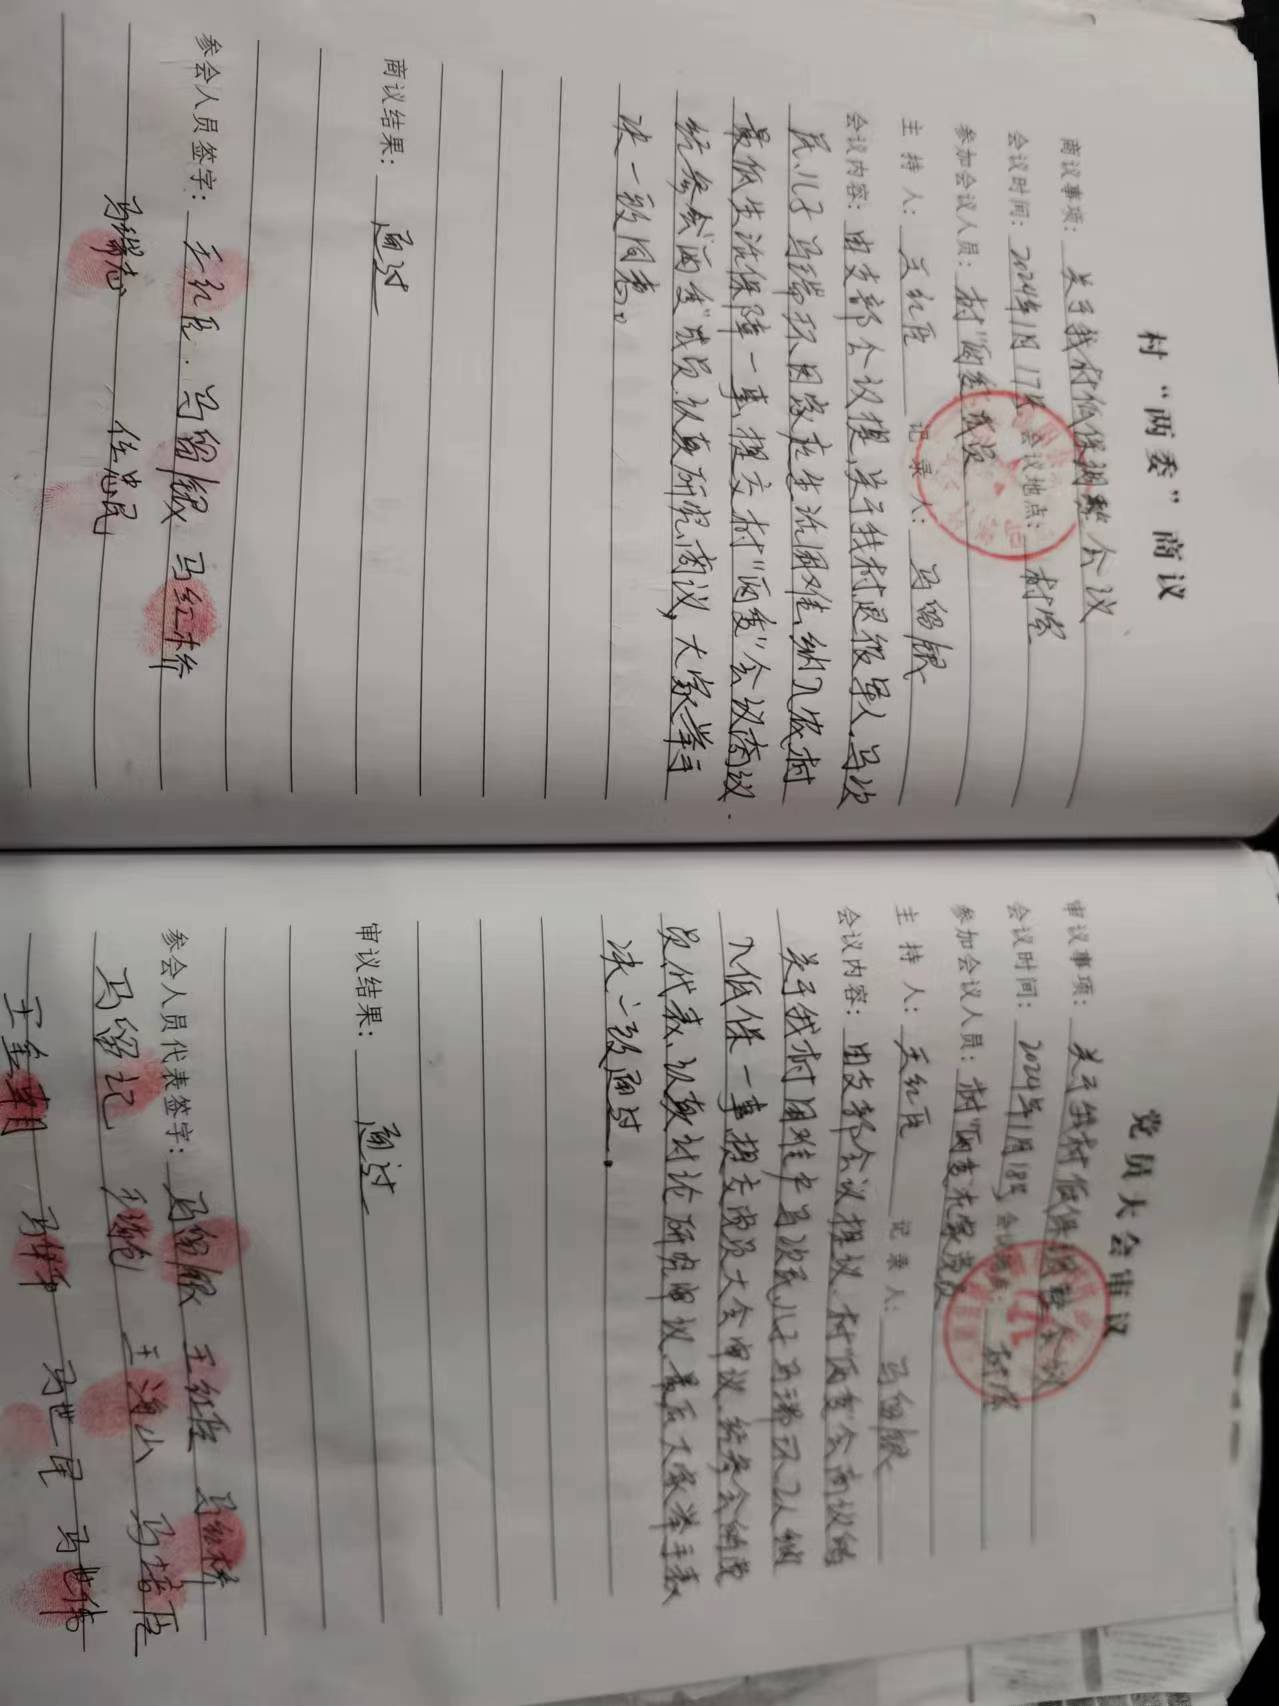 村“两委”商议
商议事项：关于我村低保调整会议
会议时间：2024年1月17日 会议地点：村室
参加会议人员：村“两委”成员
主 持 人：王红臣 记 录 人：马留银
会议内容：由支部会议提，关于我村退役军人，马次
民，儿子马瑞环因家庭生活困难，纳入农村
最低生活保障一事，提交村“两委”会议商议
经参会“两委”成员，认真研究，商议，大家举手
决一致同意。
商议结果：通过
参会人员签字：王红臣 马留银 马红桥
任忠民
党员大会审议
审议事项：关于我村低保调整会议
会议时间：2024年1月18号 会议地点：村室
参加会议人员：村“两委”党员
主 持 人：王红臣 记 录 人：马留银
会议内容：由支部会议提议，村“两委”会商议的
关于我村困难户马次民儿子马瑞环纳
入低保一事提交党员大会审议，经参会的党
员，代表，认真讨论研究审议，最后大家举手表
决，一致通过。
审议结果：通过
参会人员代表签字：马留银 王红臣 马红桥
马留记 王海山 马培臣
马世民 马世伟